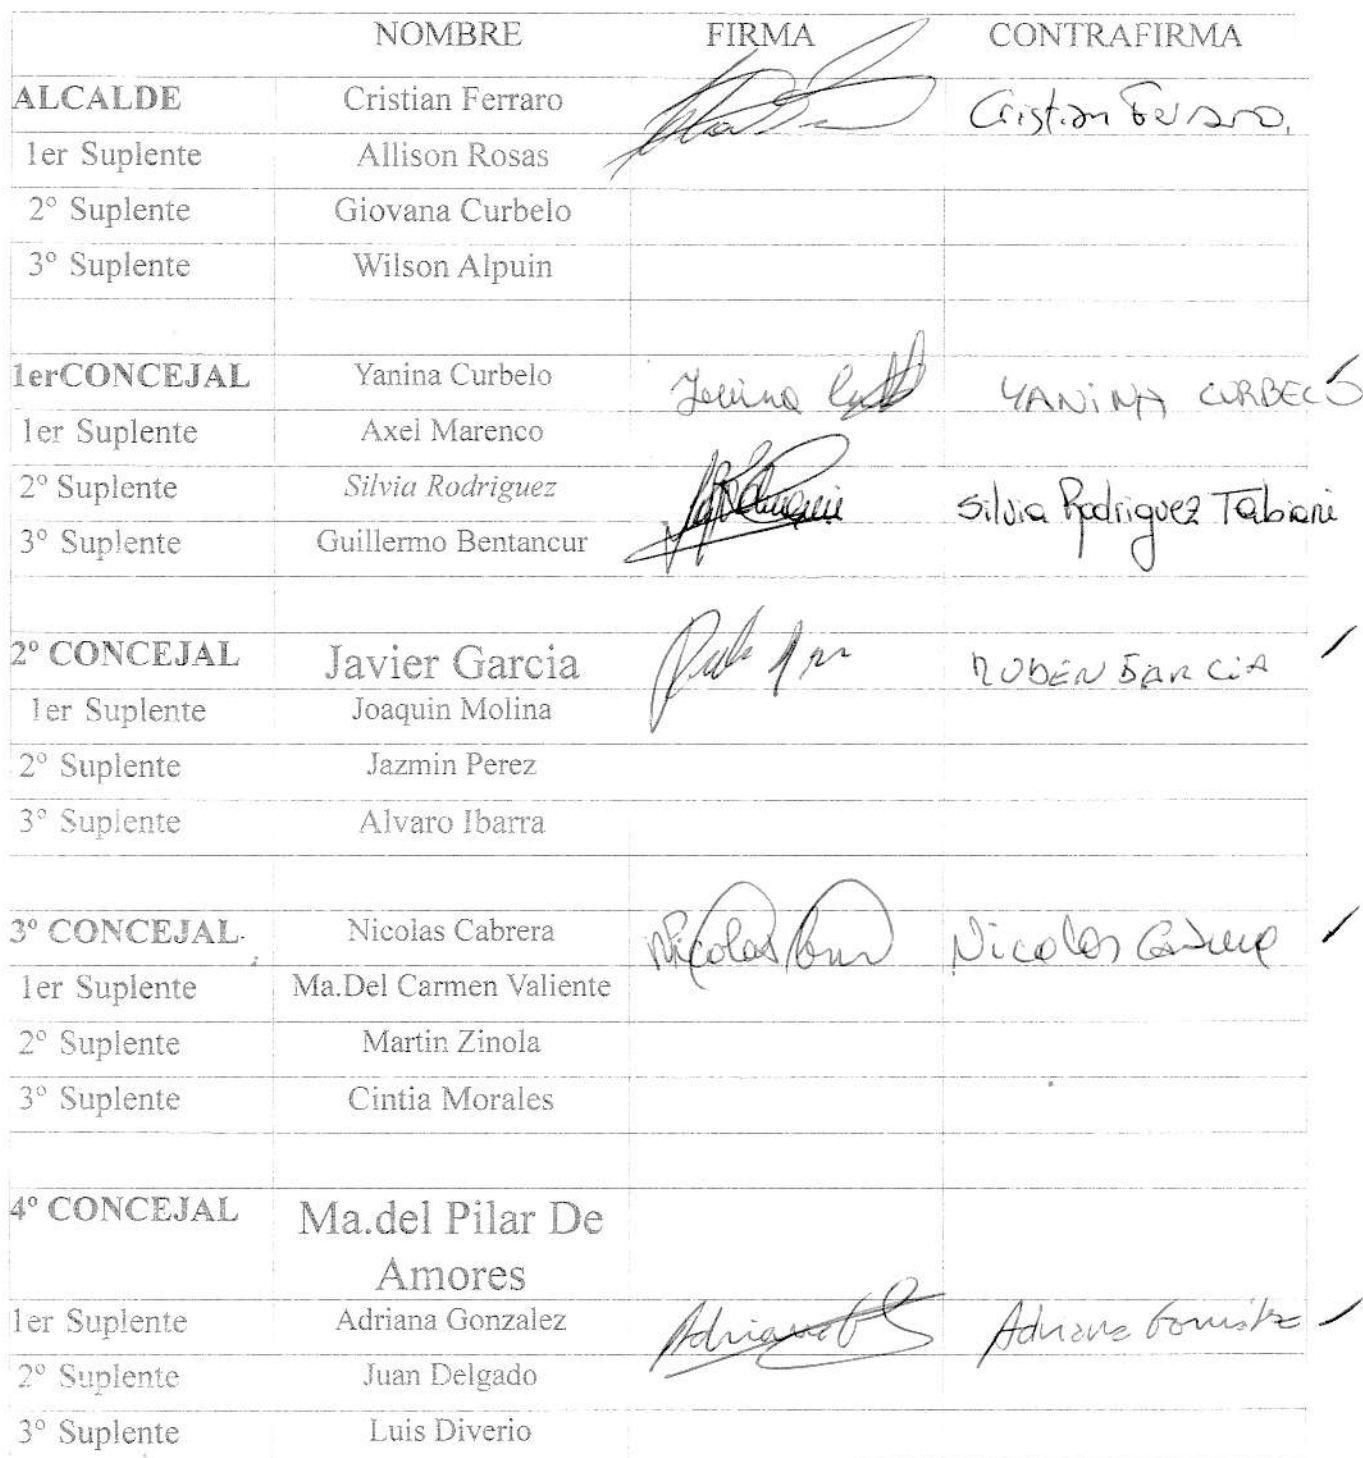 NOMBRE FIRMA CONTRAFIRMA
ALCALDE Cristian Ferraro Cristian Ferraro.
1er Suplente Allison Rosas
2º Suplente Giovana Curbelo
3º Suplente Wilson Alpuin
1erCONCEJAL Yanina Curbelo YANINA CURBELO
1er Suplente Axel Marenco
2º Suplente Silvia Rodriguez Silvia Rodriguez Tabiani
3º Suplente Guillermo Bentancur
2º CONCEJAL Javier Garcia RUBEN GARCIA
1er Suplente Joaquin Molina
2º Suplente Jazmin Perez
3º Suplente Alvaro Ibarra
3º CONCEJAL Nicolas Cabrera Nicolas Nicolas Cabrera
1er Suplente Ma.Del Carmen Valiente
2º Suplente Martin Zinola
3º Suplente Cintia Morales
4º CONCEJAL Ma.del Pilar De
Amores
1er Suplente Adriana Gonzalez Adriana Adriana Gonzalez
2º Suplente Juan Delgado
3º Suplente Luis Diverio